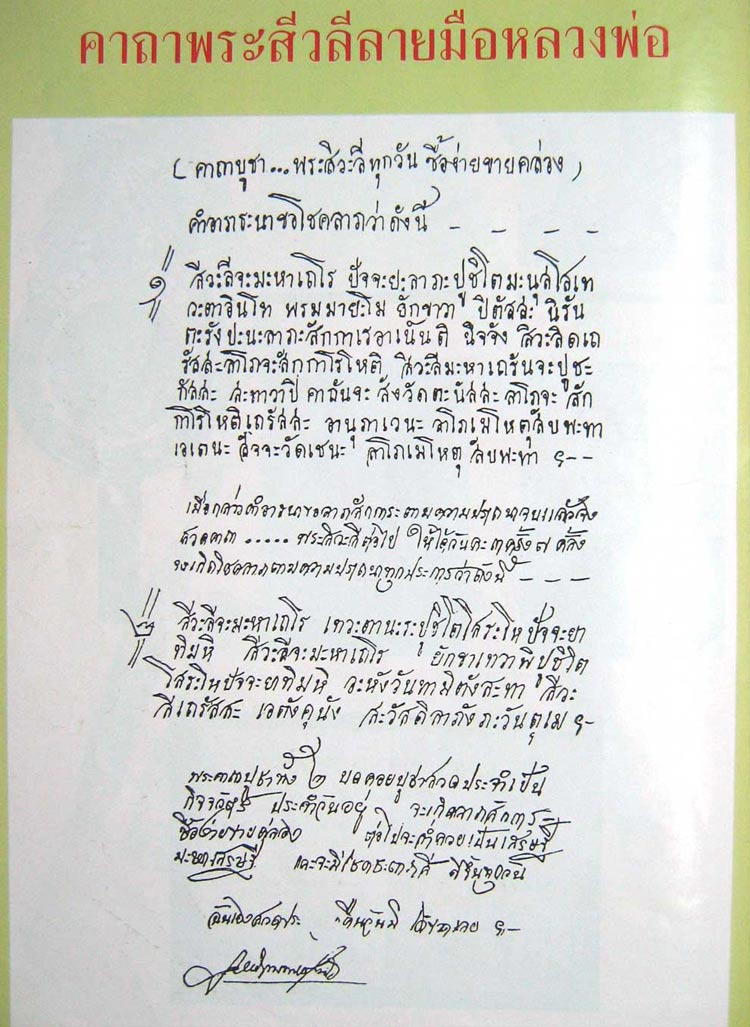 คาถาพระสีวลีลายมือหลวงพ่อ
(คาถาบูชา...พระสีวะลีทุกวัน ซื้อง่ายขายคล่อง)
คำอาราธนาขอโชคลาภว่าดังนี้ - - - -
๑ สีวะลีจะมะหาเถโร ปัจจะยะลาภะปูชิโตมะนุสโสเท
วะตาอินโท พรมมายะโม ยักขาวา ปิตัสสะ นิรัน
ตะรังปะนะลาภะสักกาเรอาเนันติ นิจจัง สิวะลิดเถ
รัสสะลาโภจะสักกาโรโหติ สิวะลีมะหาเถรันจะปูชะ
กัสสะ สะทาวาปิ คาถันจะ สังวัดตะนัสสะ ลาโภจะ สัก
กาโรโหติเถรัสสะ อานุภาเวนะ ลาโภเมโหตุสับพะทา
เอเตนะ สัจจะวัดเชนะ ลาโภเมโหตุ สับพะทา ๚--
เมื่อกล่าวคำอาราธนาขอลาภสักการะตามความปรารถนาจบแล้วจึง
สวดคาถา ..... พระสิวะลีต่อไป ให้ได้วันละ ๓ ครั้ง ๗ ครั้ง
จะเกิดโชคลาภตามความปรารถนาทุกประการว่าดังนี้ - - - -
๒ สีวะลีจะมะหาเถโร เทวะตานะระปูชิโตโสระโหปัจจะยา
ทิมหิ สีวะลีจะมะหาเถโร ยักขาเทวาพิปูชิโต
โสระโหปัจจะยาทิมหิ อะหังวันทามิตังสะทา สีวะ
ลีเถรัสสะ เอตังคุนัง สะวัสดิลาภังภะวันตุเม ๚-
พระคาถาบูชาทั้ง ๒ บทคอยบูชาสวดประจำเป็น
กิจวัตร ประจำวันอยู่ จะเกิดลาภสักการะ
ซื้อง่ายขายคล่อง ต่อไปจะร่ำรวยเป็นเศรษฐี
มะหาเศรษฐี และจะมีโชคชะตาดี ดีขึ้นทุกวัน